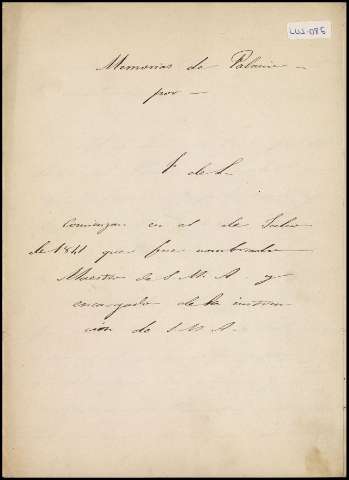 LUJ-085
Memorias de Palacio —
por —
F de L
Comienzan en el de Julio
de 1841 que fue nombrado
Maestro de S M A y
encargado de la instruc
ción de S M A.